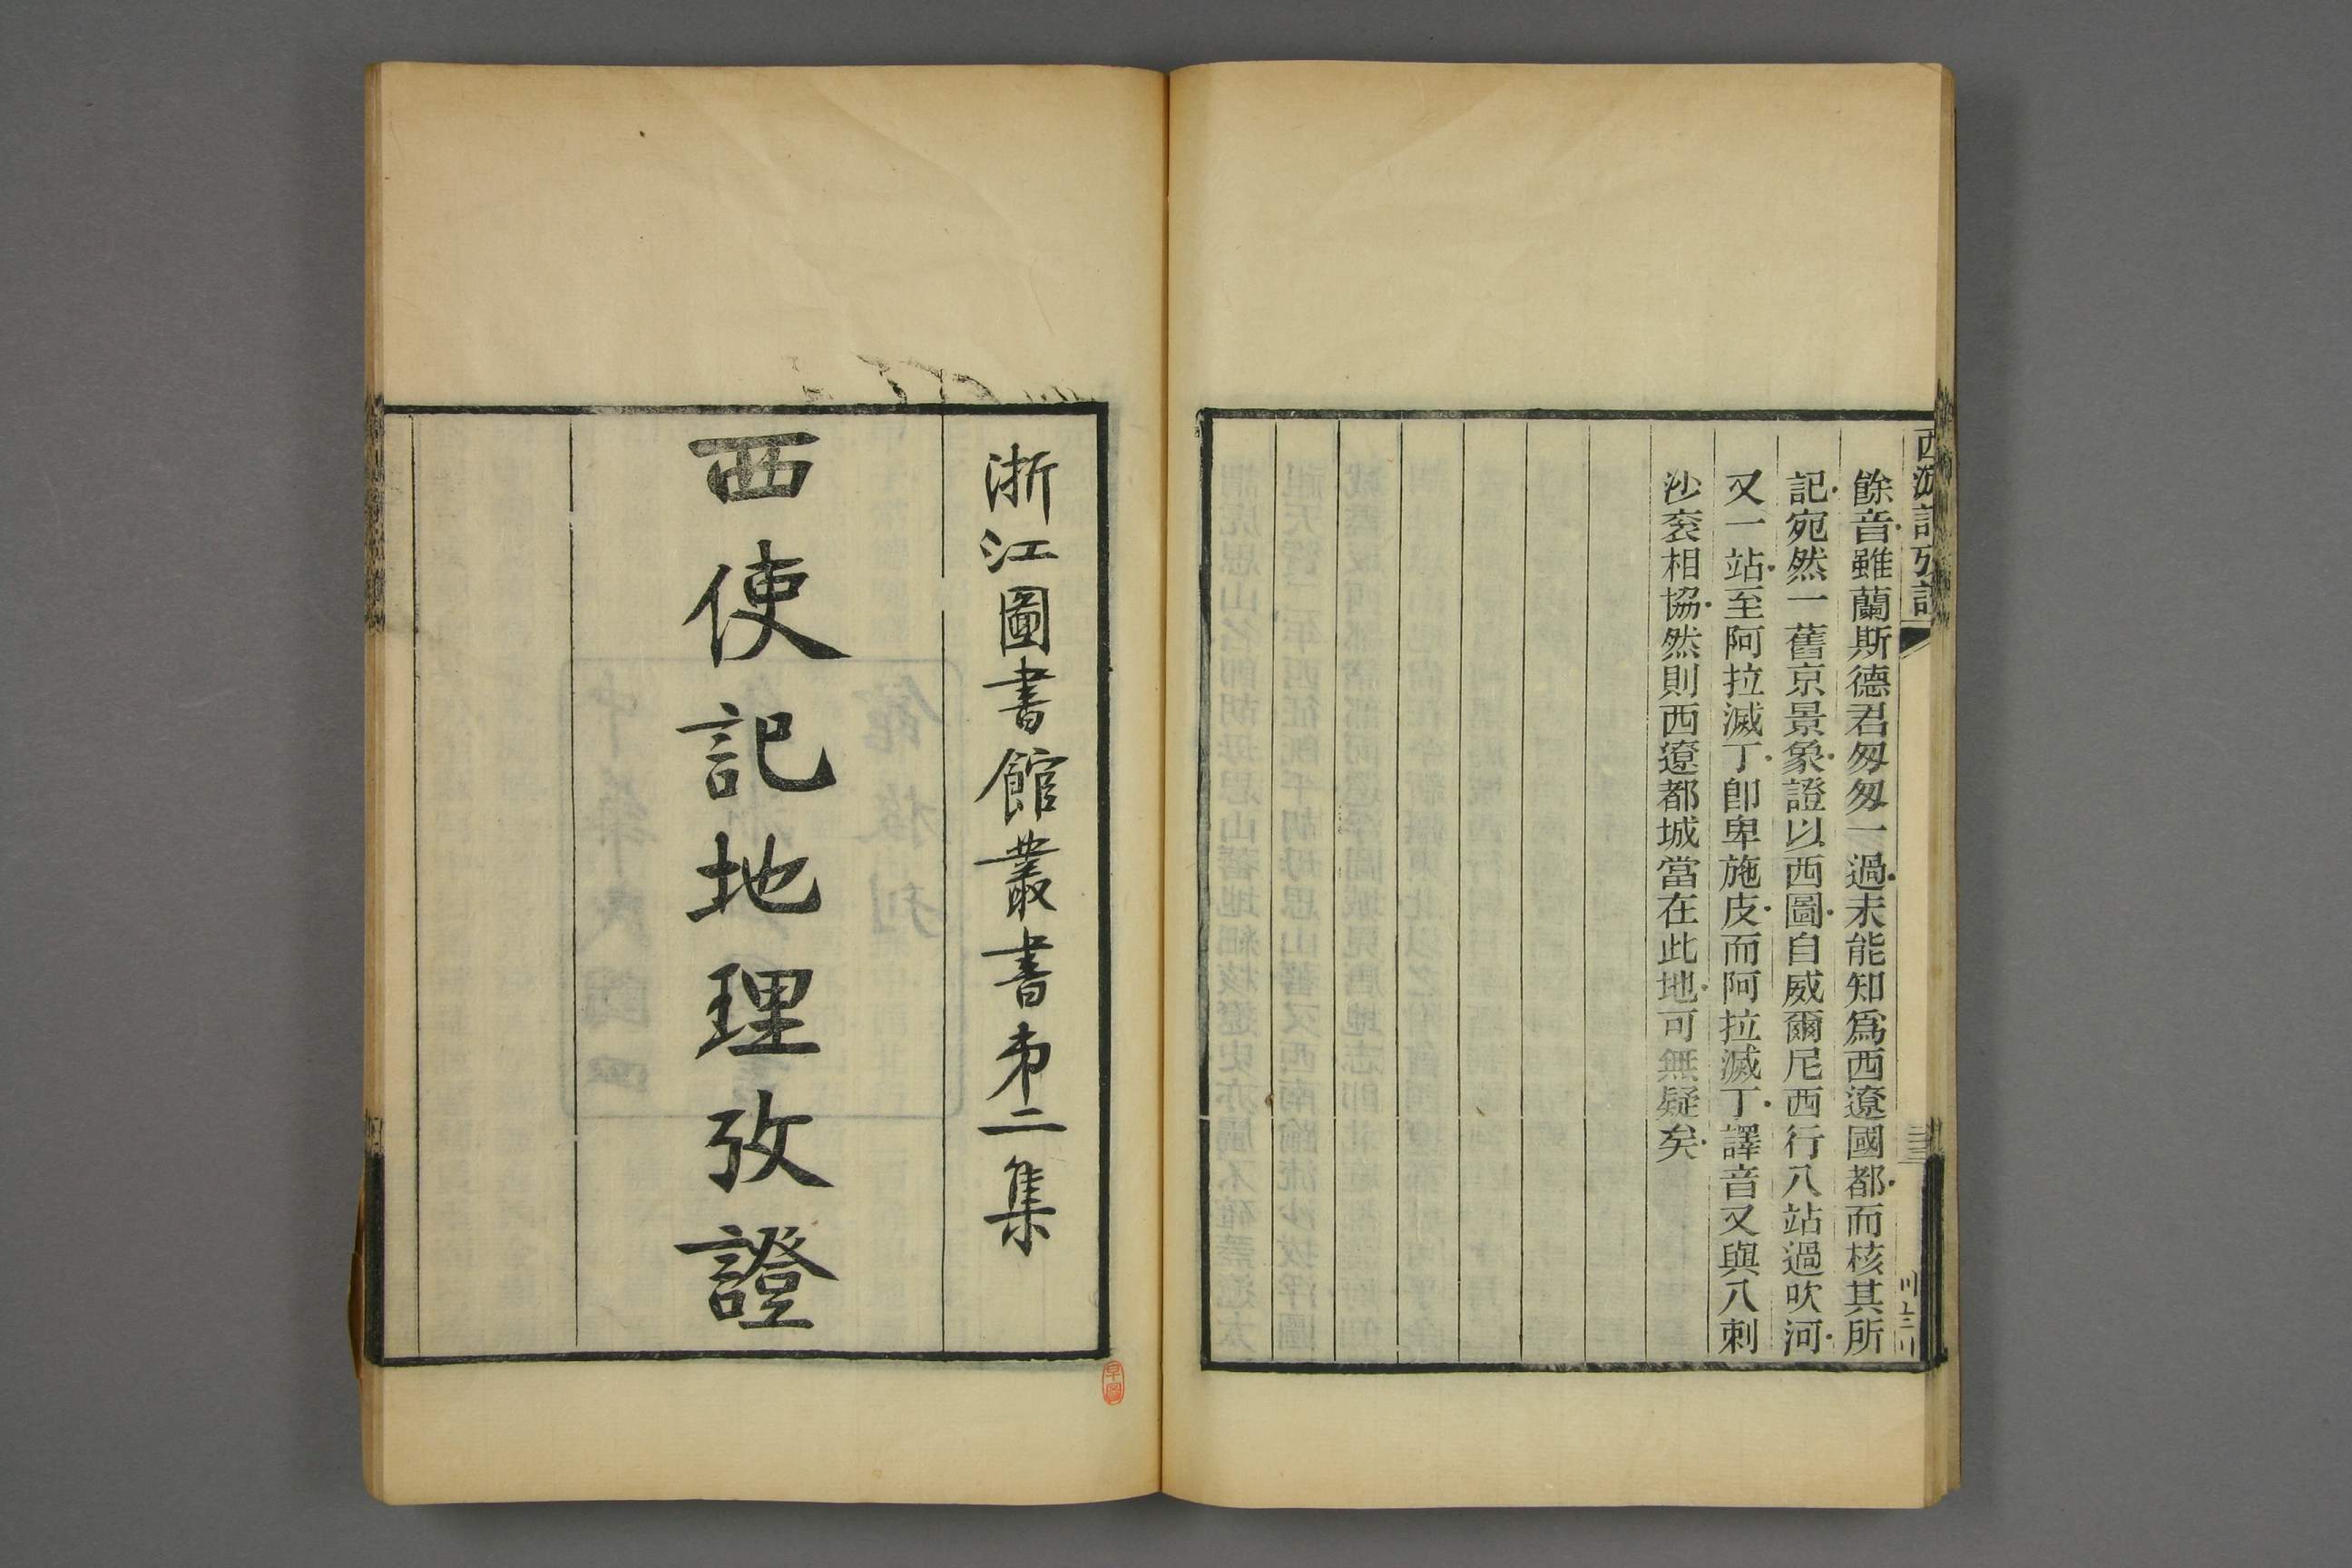 餘音雖蘭斯德君匆匆一過未能知爲西遼國都而核其所
記宛然一舊京景象證以西圖自威爾尼西行八站過吹河
又一站至阿拉滅丁卽卑施皮而阿拉滅丁譯音又與八刺
沙衮相協然則西遼都城當在此地可無疑矣
浙江圖書館叢書第二集
西使記地理攷證